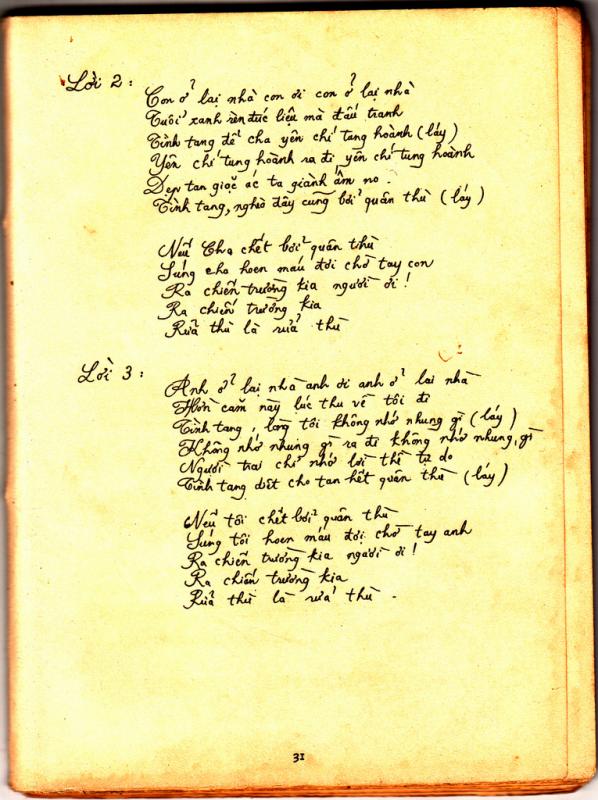 Lời 2:
Con ở lại nhà con ơi con ở lại nhà
Tuổi xanh rèn đúc liệu mà đấu tranh
Tình tang để cha yên chí tung hoành (láy)
Yên chí tung hoành ra đi yên chí tung hoành
Dẹp tan giặc ác ta giành ấm no.
Tình tang, nghèo đây cũng bởi quân thù (láy)
Nếu Cha chết bởi quân thù
Súng cha hoen máu đợi chờ tay con
Ra chiến trường kia người ơi!
Ra chiến trường kia
Rửa thù là rửa thù
Lời 3:
Anh ở lại nhà anh ơi anh ở lại nhà
Hờn căm này lúc thu về tôi đi
Tình tang, lòng tôi không nhớ nhung gì (láy)
Không nhớ nhung gì ra đi không nhớ nhung, gì
Người trai chỉ nhớ lời thề tự do
Tình tang diệt cho tan hết quân thù (láy)
Nếu tôi chết bởi quân thù
Súng tôi hoen máu đợi chờ tay anh
Ra chiến trường kia người ơi!
Ra chiến trường kia
Rửa thù là rửa thù.
31